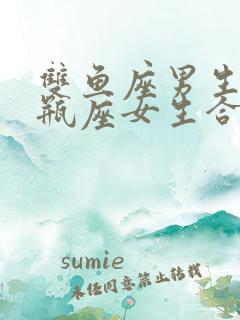 雙鱼座男生
瓶座女生合
sumie
未经同意禁止转载